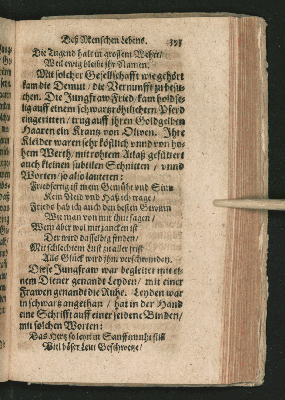 Deß Menschen Lebens. 393
Die Tugend halt in grossem Wehrt/
Weil ewig bleibt jhr Namen.
Mit solcher Gesellschafft wie gehört
kam die Demut / die Vernunfft zu besu-
chen. Die Jungfraw Fried / kam holdse-
lig auff einem schwartzröhtlichten Pferd
eingeritten / trug auff ihren Goldgelben
Haaren ein Krantz von Oliven. Ihre
Kleider waren sehr köstlich vnnd von ho-
hem Werth / mit rohtem Atlaß gefütteret
auch kleinen subtilen Schnitten / vnnd
Worten / so also lauteten:
Friedfertig ist mein Gemüht vnd Sinn
Kein Neid vnd Haß ich trage/
Frieds hab ich auch den besten Gewinn
Wie man von mir thut sagen/
Wem aber wol mit zancken ist
Der wird dasselbig finden/
Mit schlechtem Lust zu aller frist
Als Glück wird ihm verschwinden.
Diese Jungfraw war begleitet mit ei-
nem Diener genandt Leyden / mit einer
Frawen genandt die Ruhe. Leyden war
in schwartz angethan / hat in der Hand
eine Schrifft auff einer seidene Binden/
mit solchen Worten:
Das Hertz so leyet in Sanfftmuht still
Viel böser Leut Geschwetze/